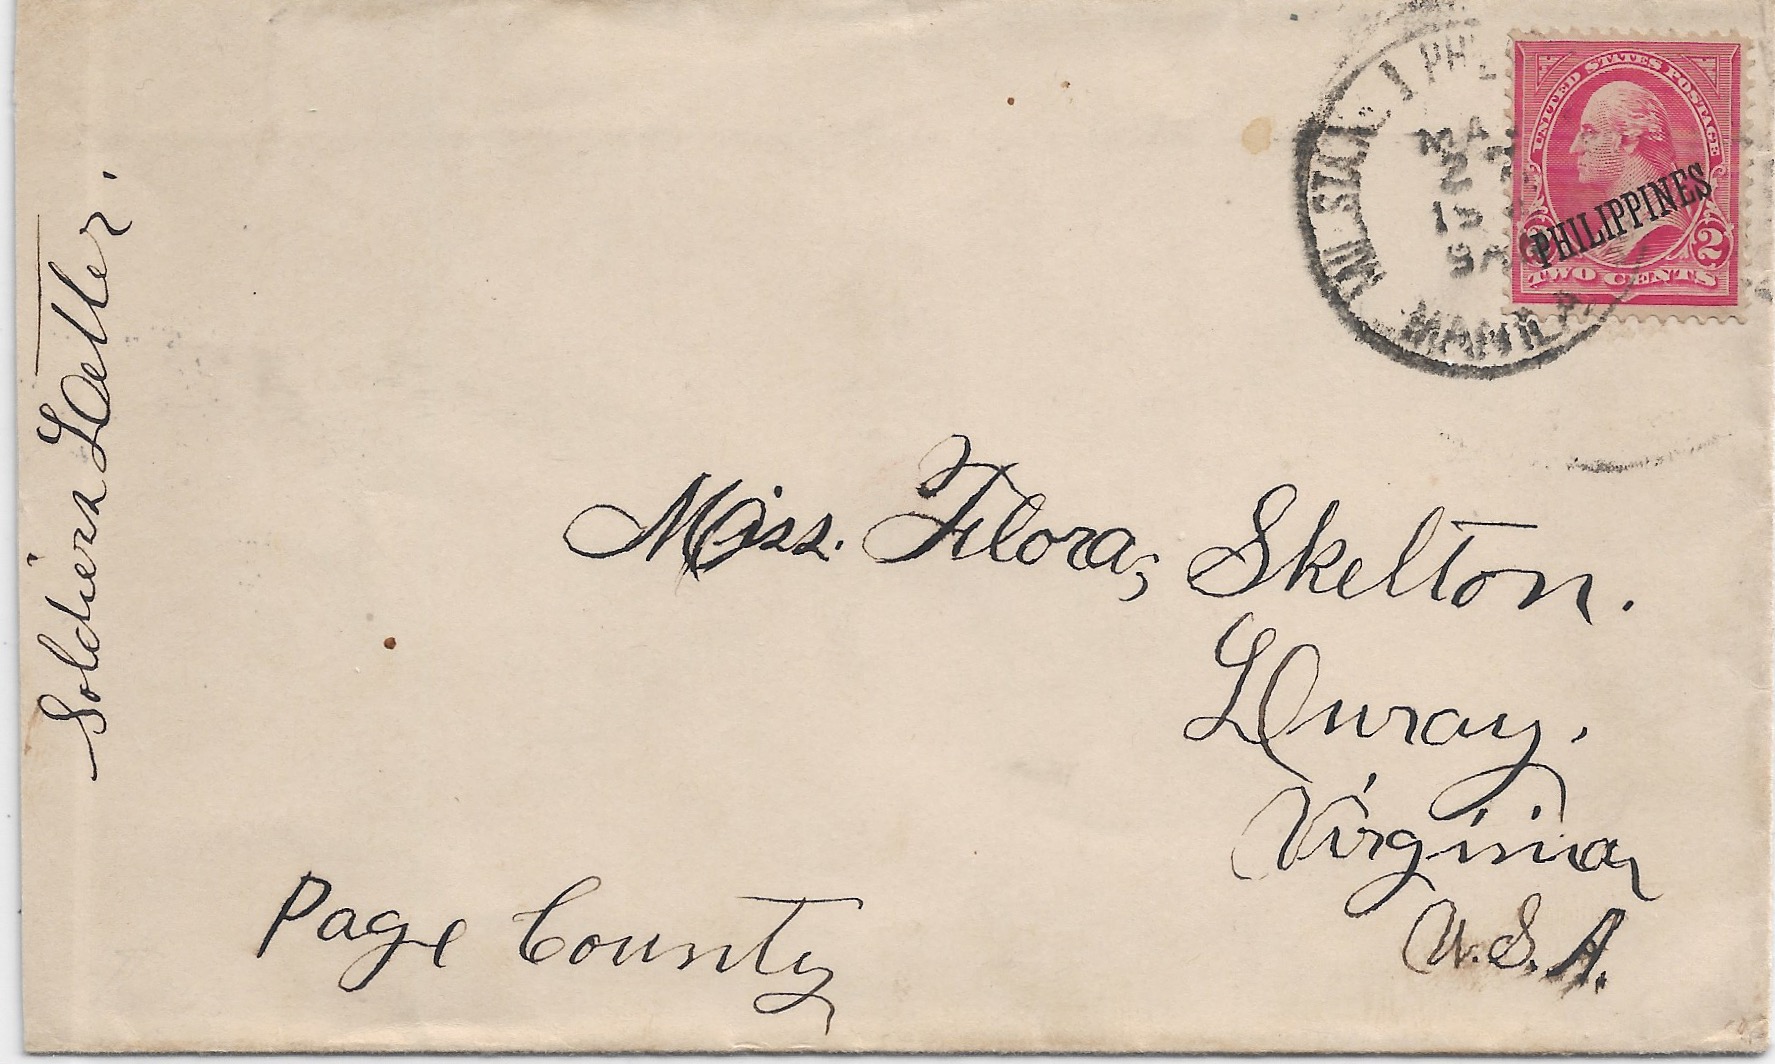 Soldiers Letter.
PHIL
MA
MANILA
UNITED STATES POSTAGE
PHILIPPINES
2
TWO CENTS
Miss. Flora, Skelton.
Luray.
Virginia
U.S.A.
Page County